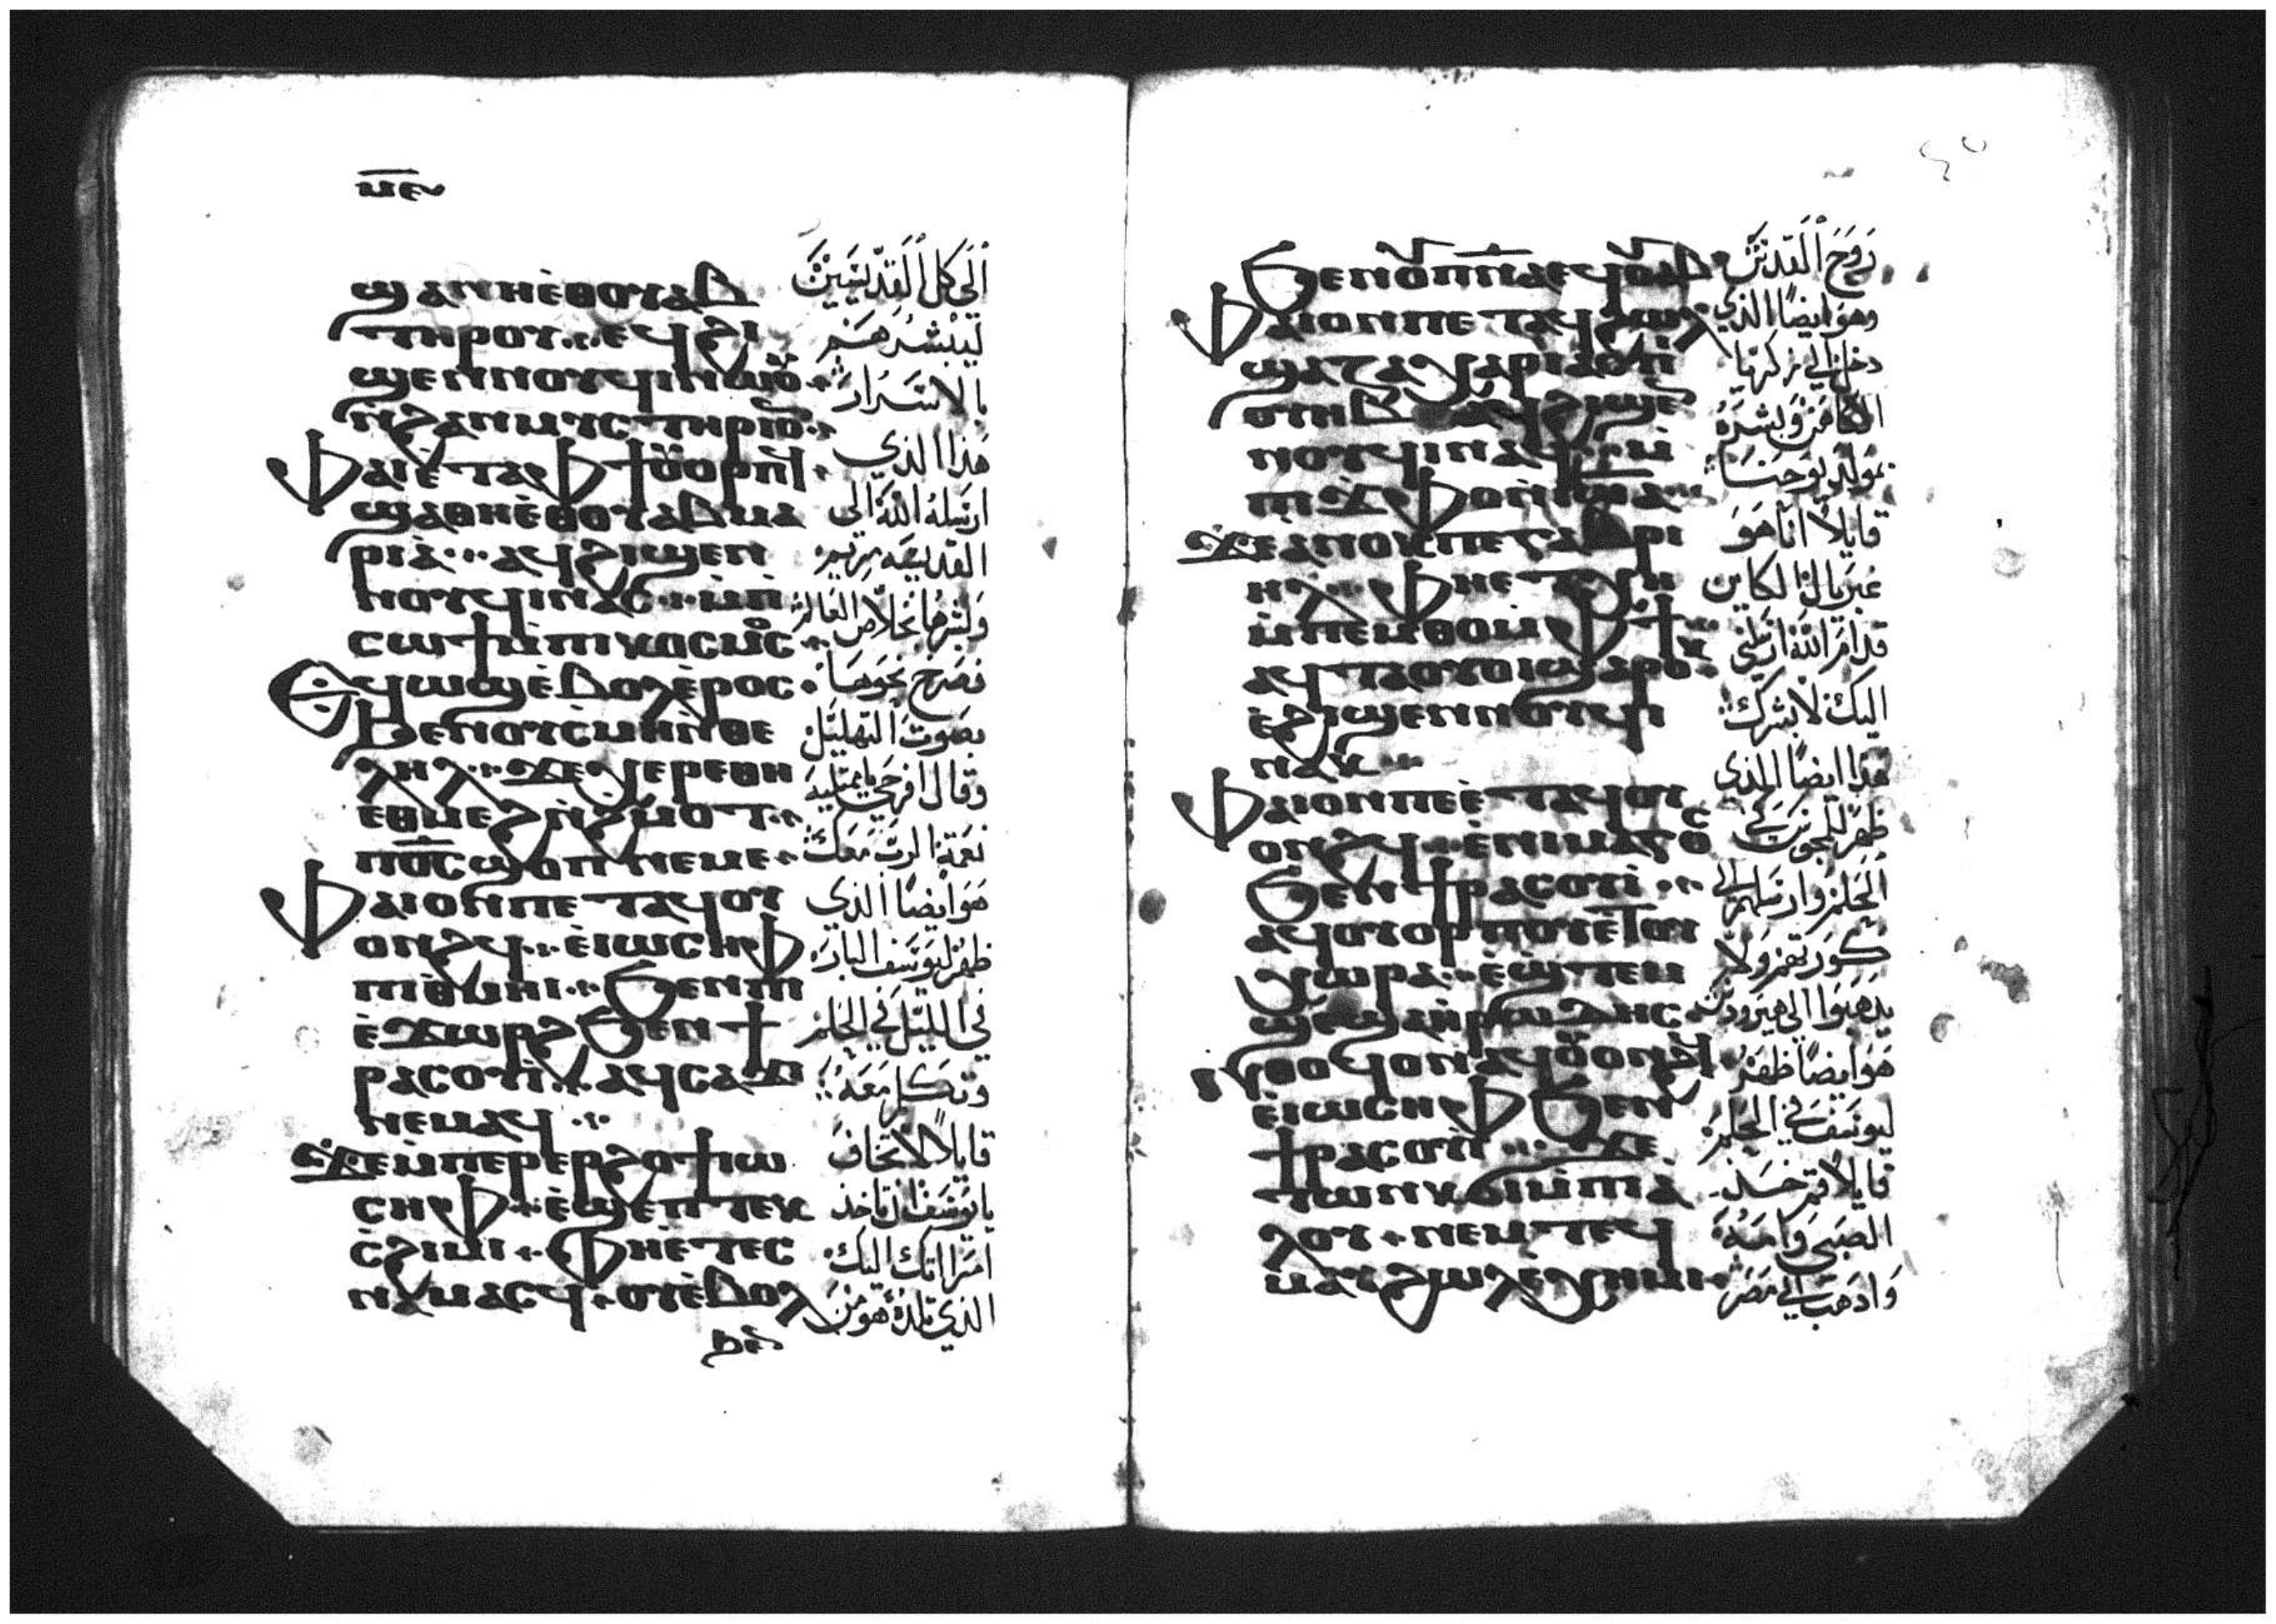 ⲙⲉ
ϣⲁⲛⲏⲉ̀ⲑⲟⲩⲁⲃ
ⲧⲏⲣⲟⲩ ⲉϥϩⲓ
ϣⲉⲛⲛⲟⲩϥⲓⲛⲱⲟⲩ
ⲛ̀ϩⲁⲛⲙⲩⲥⲧⲏⲣⲓⲟⲛ
ⲫⲁⲓⲉ̀ⲧⲁⲫϯⲟⲩⲟⲣⲡϥ
ϣⲁⲑⲏⲉ̀ⲑⲟⲩⲁⲃ ⲙⲁ
ⲣⲓⲁ̀ ⲁϥϩⲓϣⲉⲛ
ⲛⲟⲩϥⲓⲛⲁⲥ ⲙ̀ⲡ̀
ⲥⲱϯⲙ̀ⲡⲓⲕⲟⲥⲙⲟⲥ
ⲉϥⲱϣⲉ̀ⲃⲟⲗⲉ̀ⲣⲟⲥ
ϧⲉⲛⲟⲩⲥⲙⲏⲛ̀ⲑⲉ
ⲗⲏⲗ ϫⲉⲭⲉⲣⲉⲑⲏ
ⲉⲑⲙⲉϩⲛ̀ϩⲙⲟⲧ
ⲡϭⲥ ϣⲟⲡ ⲛⲉⲙⲉ
ⲫⲁⲓⲟⲛⲡⲉⲧⲁϥⲟⲩ
ⲟⲛϩϥ ⲉ̀ⲓⲱⲥⲏⲫ
ⲡⲓⲑ̀ⲙⲏⲓ ϧⲉⲛⲡⲓ
ⲉ̀ϫⲱⲣϩ ϧⲉⲛϯ
ⲣⲁⲥⲟⲩⲓ̀ ⲁϥⲥⲁϫⲓ
ⲛⲉⲙⲁϥ
ϫⲉⲙ̀ⲡⲉⲣⲉⲣϩⲟϯⲓⲱ
ⲥⲏⲫ ⲉ̀ϣⲉⲡ ⲧⲉⲕ
ⲥ̀ϩⲓⲙⲓ ⲫⲏⲉ̀ⲧⲉⲥ
ⲛⲁⲙⲁⲥϥ ⲟⲩⲉ̀ⲃⲟⲗ
ϧⲉⲛ
الى كل القديسين
ليبشرهم
بالاسرار
هذا الذي
ارسله الله الى
القديسه مريم
وبشرها بخلاص العالم
فصرخ نحوها
بصوت التهليل
وقال افرحي يا ممتلية
نعمة الرب معك
هو ايضا الذي
ظهر ليوسف البار
في الليل في الحلم
وتكلم معه
قايلا لا تخاف
يا يوسف ان تاخذ
امراتك اليك
الذي تلده هو من
٤٥
ϧⲉⲛⲟⲩⲡⲛⲁ ⲉϥⲟⲩⲁⲃ
ⲫⲁⲓⲟⲛⲡⲉⲧⲁϥϩⲱⲗ
ϣⲁⲍⲁⲭⲁⲣⲓⲁⲡⲓ
ⲟⲩⲏⲃ ⲁϥϩⲓϣⲉ
ⲛⲟⲩϥⲓⲛⲁϥ ⲙ̀
ⲡⲓϫⲫⲟⲛ̀ⲓⲱⲁ
ϫⲉⲁⲛⲟⲕⲡⲉⲅⲁⲃⲣⲓ
ⲏⲗ ⲫⲏⲉⲧⲭⲏ
ⲙ̀ⲡⲉⲙⲑⲟⲙ̀ⲫϯ
ⲁϥⲧⲁⲟⲩⲟⲓϣⲁⲣⲟⲕ
ⲉ̀ϩⲓϣⲉⲛⲛⲟⲩϥⲓ
ⲛⲁⲕ
ⲫⲁⲓⲟⲛⲡⲉⲉ̀ⲧⲁϥⲟⲩ
ⲟⲛϩϥ ⲉ̀ⲛⲓⲙⲁⲅⲟⲥ
ϧⲉⲛϯⲣⲁⲥⲟⲩⲓ̀
ⲁϥⲟⲩⲟⲣⲡⲟⲩⲉ̀ⲧⲟⲩ
ⲭⲱⲣⲁ ⲉ̀ϣ̀ⲧⲉⲙ
ϣⲉϣⲁⲏ̀ⲣⲱⲇⲏⲥ
ⲛ̀ⲑⲟϥⲟⲛⲁϥⲟⲩⲟⲛϩϥ
ⲉ̀ⲓⲱⲥⲏⲫ ϧⲉⲛ
ϯⲣⲁⲥⲟⲩⲓ̀ ϫⲉ
ⲧⲱⲛⲕϭⲓⲙ̀ⲡⲓⲁ̀
ⲗⲟⲩ ⲛⲉⲙ ⲧⲉϥ
ⲙⲁⲩ ϩⲱⲗⲉ̀ⲭⲏⲙⲓ
روح القدس
وهو ايضا الذي
دخل الى زكريا
الكاهن وبشره
بمولد يوحنا
قايلا انا هو
غبريال الكاين
قدام الله ارسلني
اليك لابشرك
هذا ايضا الذي
ظهر للمجوس في
الحلم وارسلهم الى
كورتهم ولا
يذهبوا الى هيرودس
هو ايضا ظهر
ليوسف في الحلم
قايلا قم خذ
الصبي وامه
واذهب الى مصر